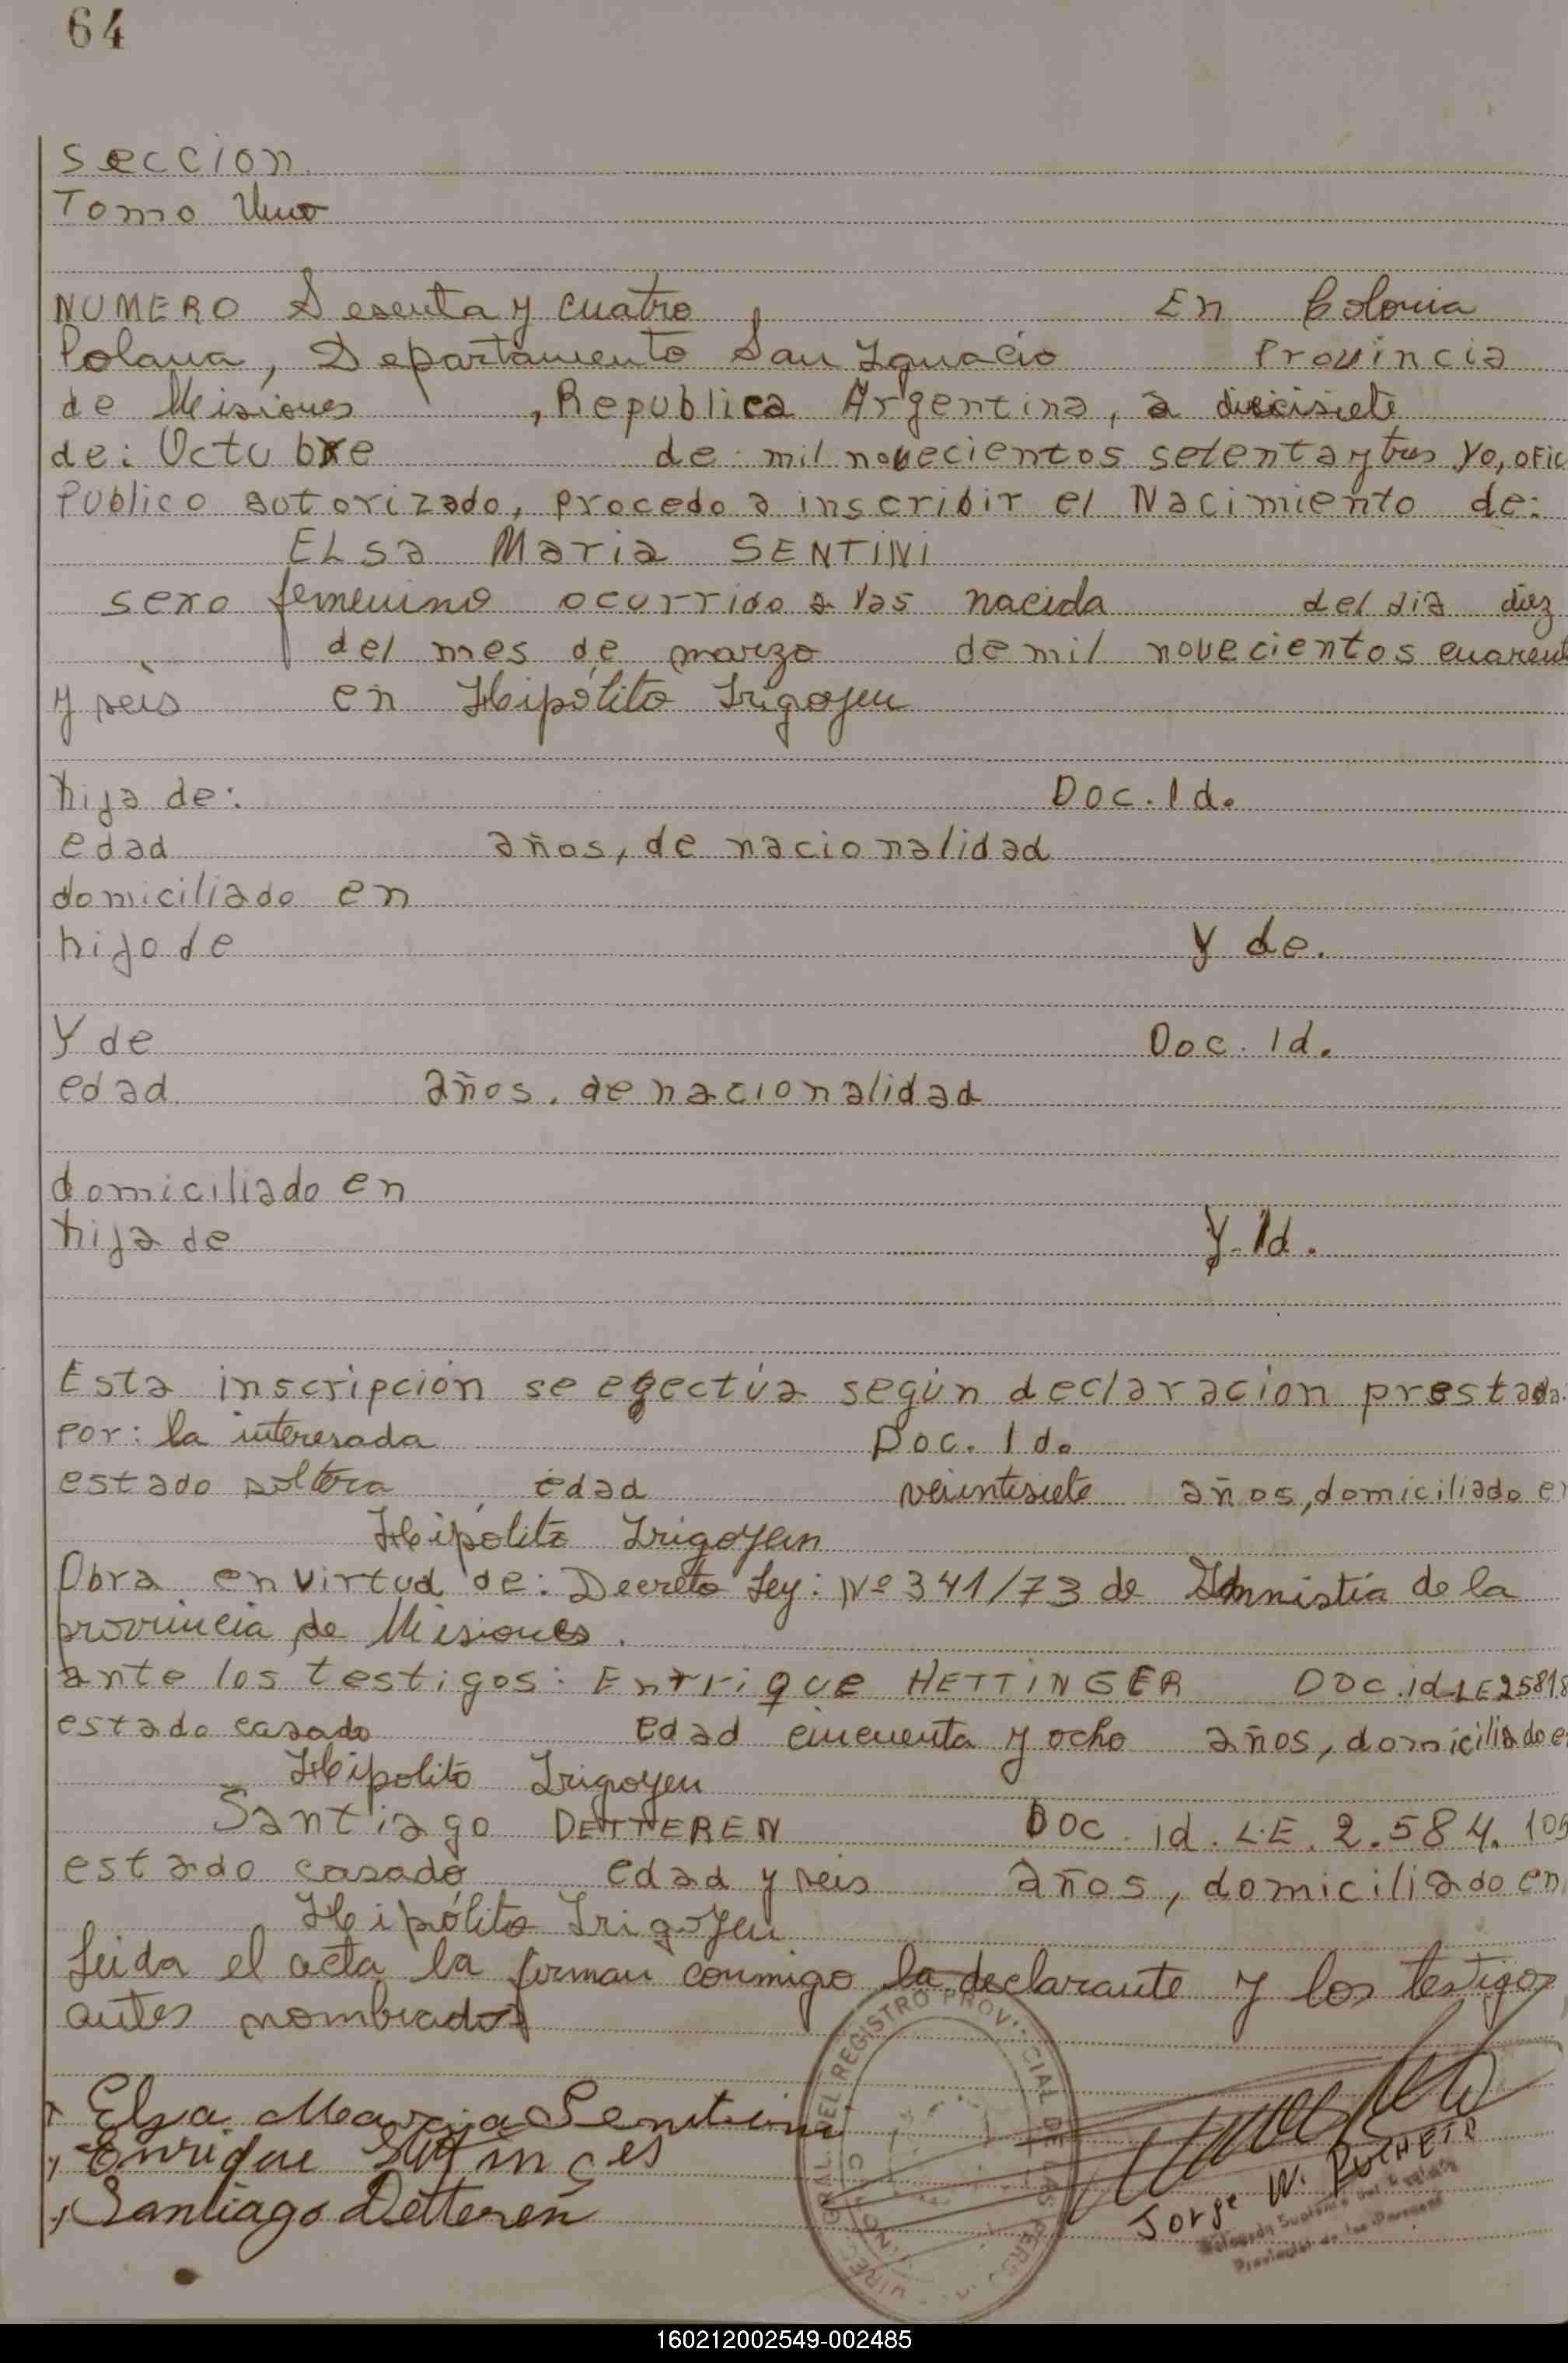 64
Seccion
Tomo Uno
NUMERO Sesenta y cuatro En Colonia
Polana, Departamento San Ignacio Provincia
de Misiones , Republica Argentina, a diecisiete
de: Octubre de mil novecientos setenta y tres Yo, ofic
Publico autorizado, procedo a inscribir el Nacimiento de:
ELSa Maria SENTINI
sexo femenino ocurrido a las nacida del dia diez
del mes de marzo de mil novecientos cuarent
y seis en Hipólito Irigoyen
hija de: Doc. Id.
edad años, de nacionalidad
domiciliado en
hijo de y de.
Y de Doc. Id.
edad años. de nacionalidad
domiciliado en
hija de y. Id.
Esta inscripción se efectúa según declaración prestada:
Por: la interesada Doc. Id.
estado soltera , edad veintisiete años, domiciliado en
Hipólito Irigoyen
Obra en virtud de: Decreto Ley: Nº 341/73 de Amnistía de la
provincia de Misiones.
ante los testigos: Enrrique HETTINGER Doc. id LE 25818
estado casado edad cincuenta y ocho años, domiciliado e
Hipolito Irigoyen
Santiago DETTEREN Doc. id. L.E. 2.584.106
estado casado edad y seis años, domiciliado en
Hipólito Irigoyen
Leida el acta la firman conmigo la declarante y los testigos
antes nombrados
Elsa Maria Sentini
Enrique
Santiago Detteren
DEL REGISTRO PROVINCIAL DE LAS PERSON
Jorge W. PUCHETA
Delegado Suplente del Registro
Provincial de las Personas
160212002549-002485